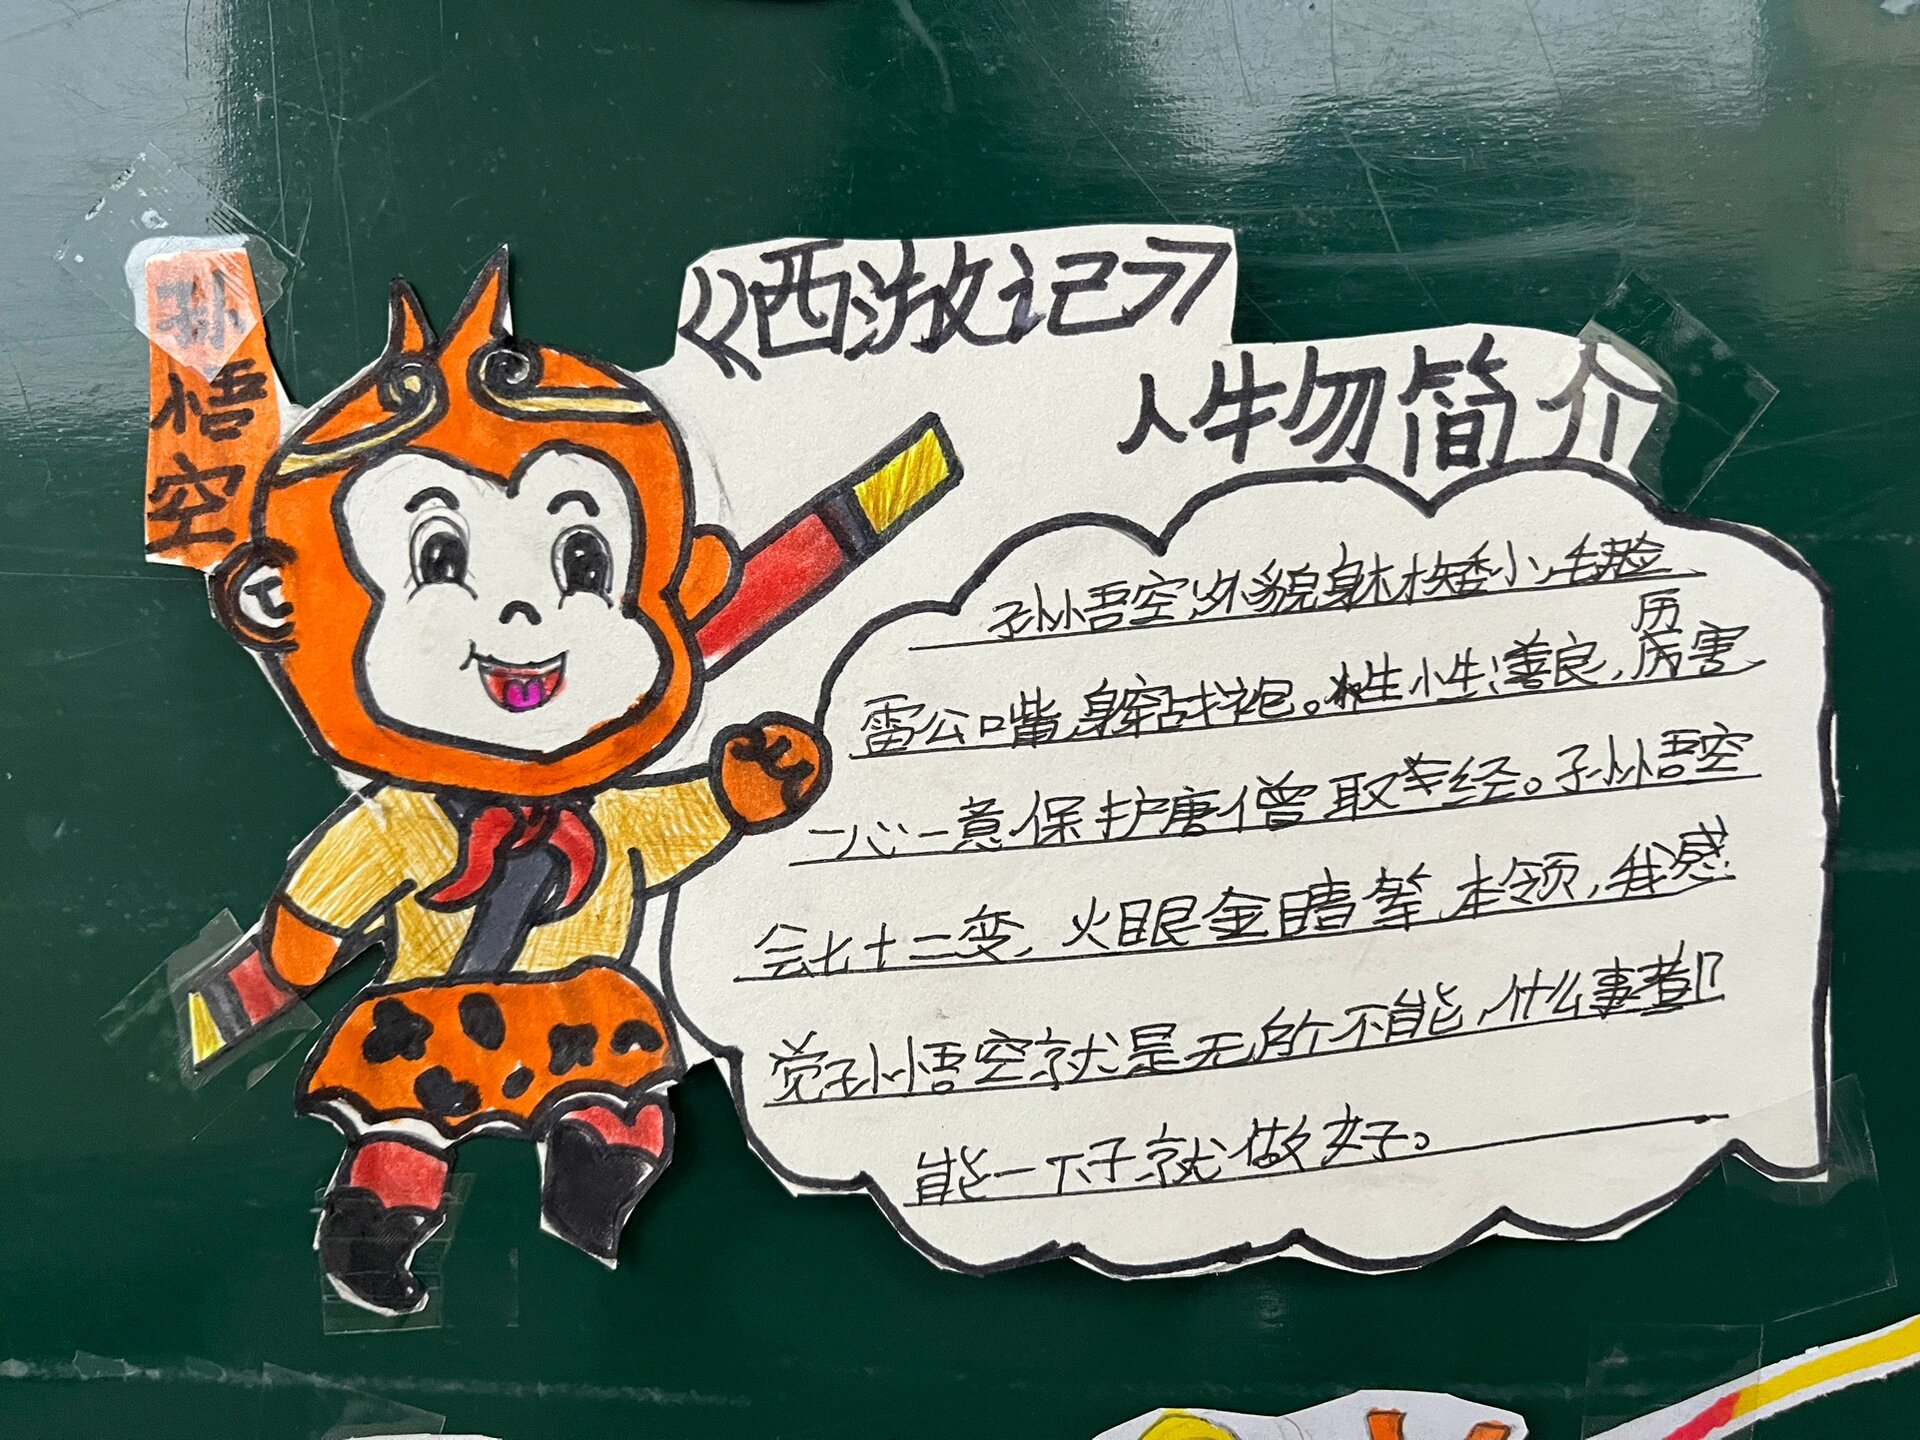 孙悟空
《西游记》
人物简介
孙悟空,外貌身材矮小,毛脸
雷公嘴,身穿战袍。性善良,厉害
历
一心一意保护唐僧取经。孙悟空
会七十二变,火眼金睛等本领,我感
觉孙悟空就是无所不能,什么事都
能一下子就做好。